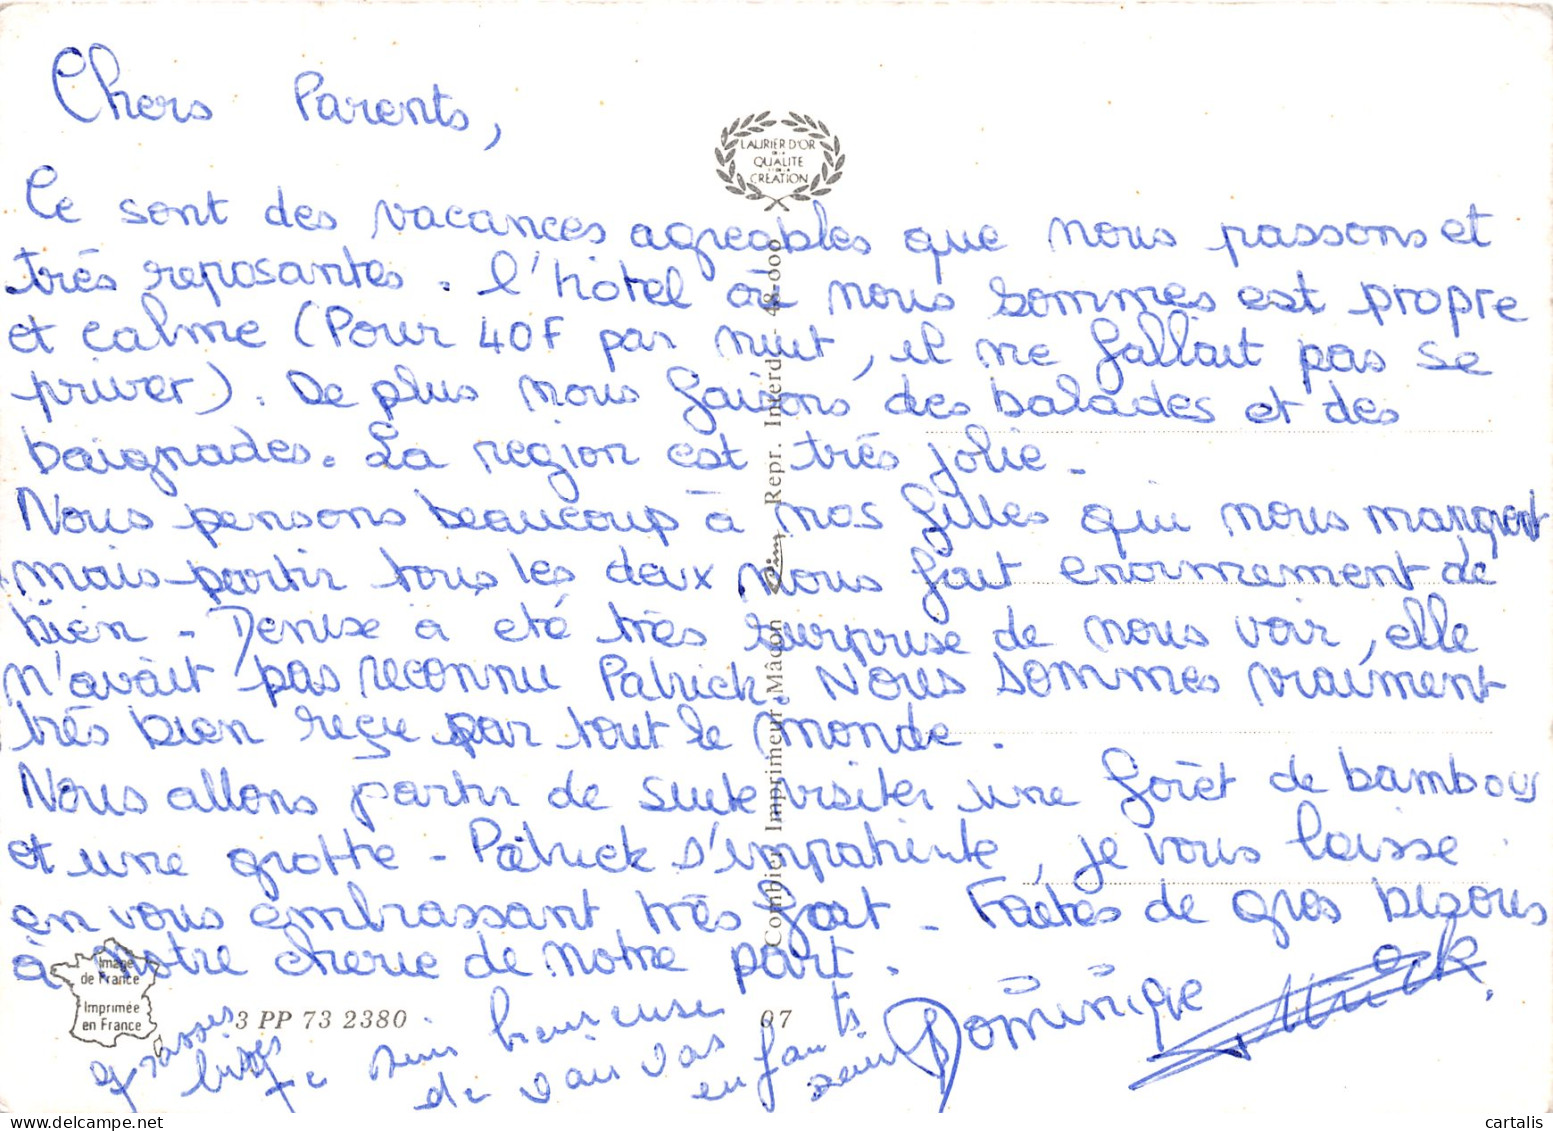 Chers Parents,
LAURIER D'OR
DE LA
QUALITE
DE LA
CREATION
Ce sont des vacances agreables que nous passons et
très reposantes. L'hôtel où nous sommes est propre
et calme (Pour 40F par nuit, il ne fallait pas se
priver). De plus nous faisons des balades et des
baignades. La region est très jolie -
Nous pensons beaucoup à nos filles qui nous manquent
mais partir tous les deux nous fait enormement de
bien - Denise a été très surprise de nous voir, elle
n'avait pas reconnu Patrick. Nous sommes vraiment
très bien reçu par tout le monde.
Nous allons partir de suite visiter une forêt de bambous
et une grotte - Patrick s'impatiente, je vous laisse
en vous embrassant très fort - Faites de gros bisous
à notre cherie de notre part.
Dominique
grosses bises
je suis heureuse
de voir vos enfants
Combier Imprimeur Mâcon Cim Repr. Interd. 48-000
Image
de France
Imprimée
en France
3 PP 73 2380 07
cartalis